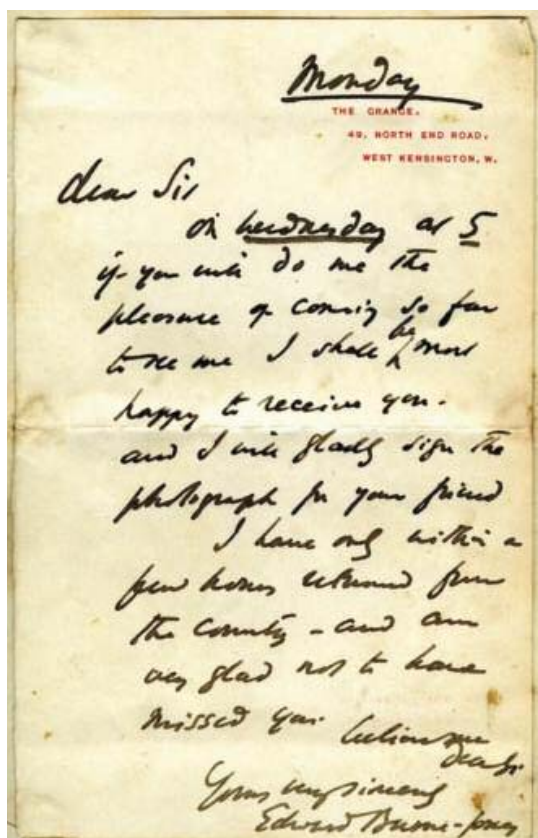 Monday
THE GRANGE,
49, NORTH END ROAD,
WEST KENSINGTON, W.
dear Sir
on Wednesday at 5
if you will do me the
pleasure of coming so far
to see me I shall be most
happy to receive you.
and I will gladly sign the
photograph for your friend
I have only within a
few hours returned from
the country - and am
very glad not to have
missed you. believe me
dear Sir
Yours very sincerely
Edward Burne-Jones